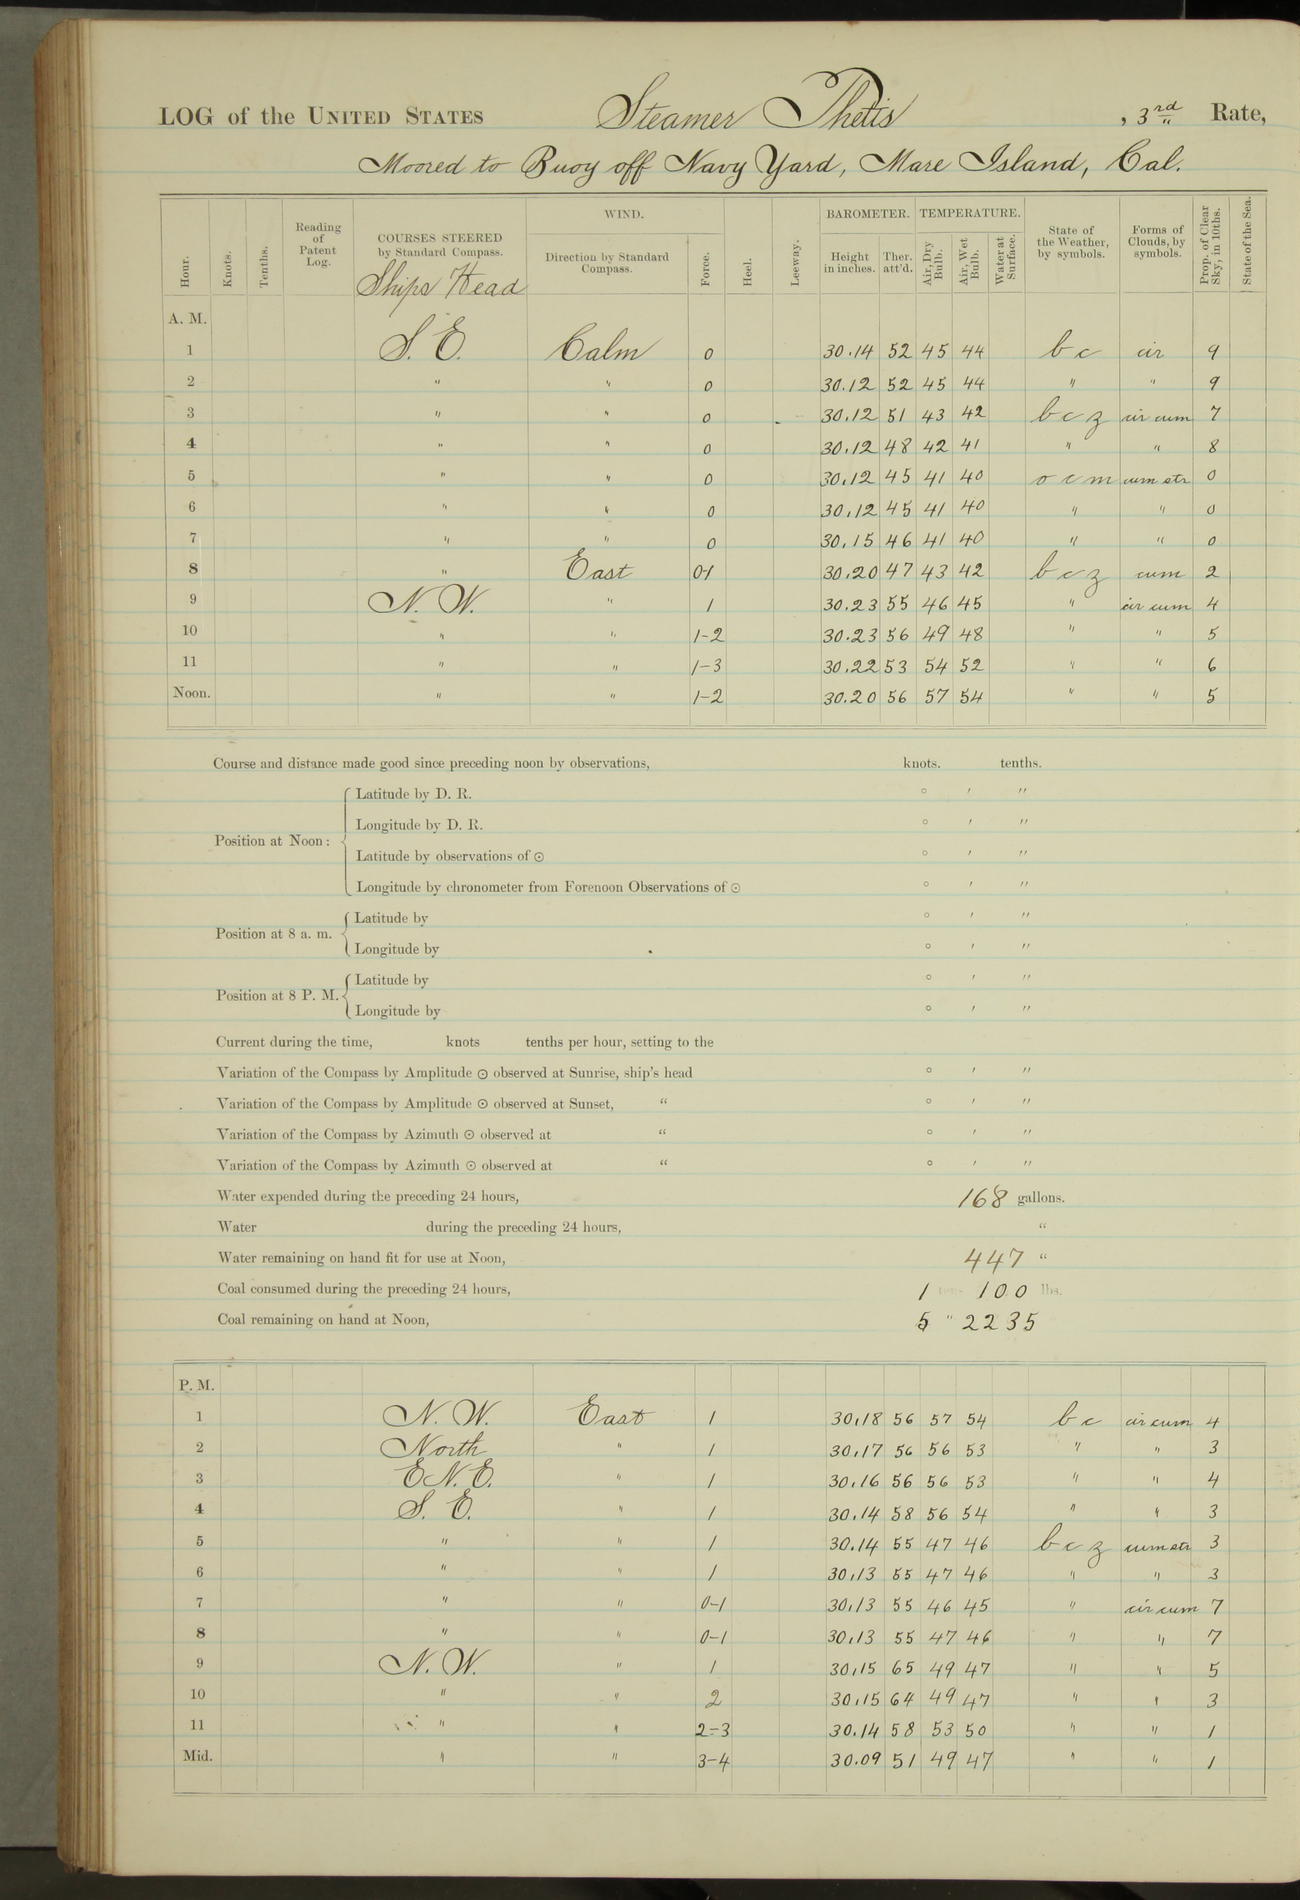 LOG of the UNITED STATES Steamer Thetis , 3rd Rate,
Moored to Buoy off Navy Yard, Mare Island, Cal.
Hour. Knots. Tenths. Reading of Patent Log. COURSES STEERED by Standard Compass. WIND. Direction by Standard Compass. Force. Heel. Leeway. BAROMETER. Height in inches. Ther. att'd. TEMPERATURE. Air, Dry Bulb. Air, Wet Bulb. Water at Surface. State of the Weather, by symbols. Forms of Clouds, by symbols. Prop. of Clear Sky, in 10ths. State of the Sea.
Ships Head
A. M.
1 S. E. Calm 0 30.14 52 45 44 b c cir 9
2 " " 0 30.12 52 45 44 " " 9
3 " " 0 30.12 51 43 42 b c z cir cum 7
4 " " 0 30.12 48 42 41 " " 8
5 " " 0 30.12 45 41 40 o c m cum str 0
6 " " 0 30.12 45 41 40 " " 0
7 " " 0 30.15 46 41 40 " " 0
8 " East 0-1 30.20 47 43 42 b c z cum 2
9 N. W. " 1 30.23 55 46 45 " cir cum 4
10 " " 1-2 30.23 56 49 48 " " 5
11 " " 1-3 30.22 53 54 52 " " 6
Noon. " " 1-2 30.20 56 57 54 " " 5
Course and distance made good since preceding noon by observations, knots. tenths.
Position at Noon:
Latitude by D. R. ° ′ ″
Longitude by D. R. ° ′ ″
Latitude by observations of ⊙ ° ′ ″
Longitude by chronometer from Forenoon Observations of ⊙ ° ′ ″
Position at 8 a. m.
Latitude by ° ′ ″
Longitude by ° ′ ″
Position at 8 P. M.
Latitude by ° ′ ″
Longitude by ° ′ ″
Current during the time, knots tenths per hour, setting to the
Variation of the Compass by Amplitude ⊙ observed at Sunrise, ship's head ° ′ ″
Variation of the Compass by Amplitude ⊙ observed at Sunset, " ° ′ ″
Variation of the Compass by Azimuth ⊙ observed at " ° ′ ″
Variation of the Compass by Azimuth ⊙ observed at " ° ′ ″
Water expended during the preceding 24 hours, 168 gallons.
Water during the preceding 24 hours, "
Water remaining on hand fit for use at Noon, 447 "
Coal consumed during the preceding 24 hours, 1 tons 100 lbs.
Coal remaining on hand at Noon, 5 " 2235
P. M.
1 N. W. East 1 30.18 56 57 54 b c cir cum 4
2 North " 1 30.17 56 56 53 " " 3
3 E.N.E. " 1 30.16 56 56 53 " " 4
4 S. E. " 1 30.14 58 56 54 " " 3
5 " " 1 30.14 55 47 46 b c z cum str 3
6 " " 1 30.13 55 47 46 " " 3
7 " " 0-1 30.13 55 46 45 " cir cum 7
8 " " 0-1 30.13 55 47 46 " " 7
9 N. W. " 1 30.15 65 49 47 " " 5
10 " " 2 30.15 64 49 47 " " 3
11 " " 2-3 30.14 58 53 50 " " 1
Mid. " " 3-4 30.09 51 49 47 " " 1